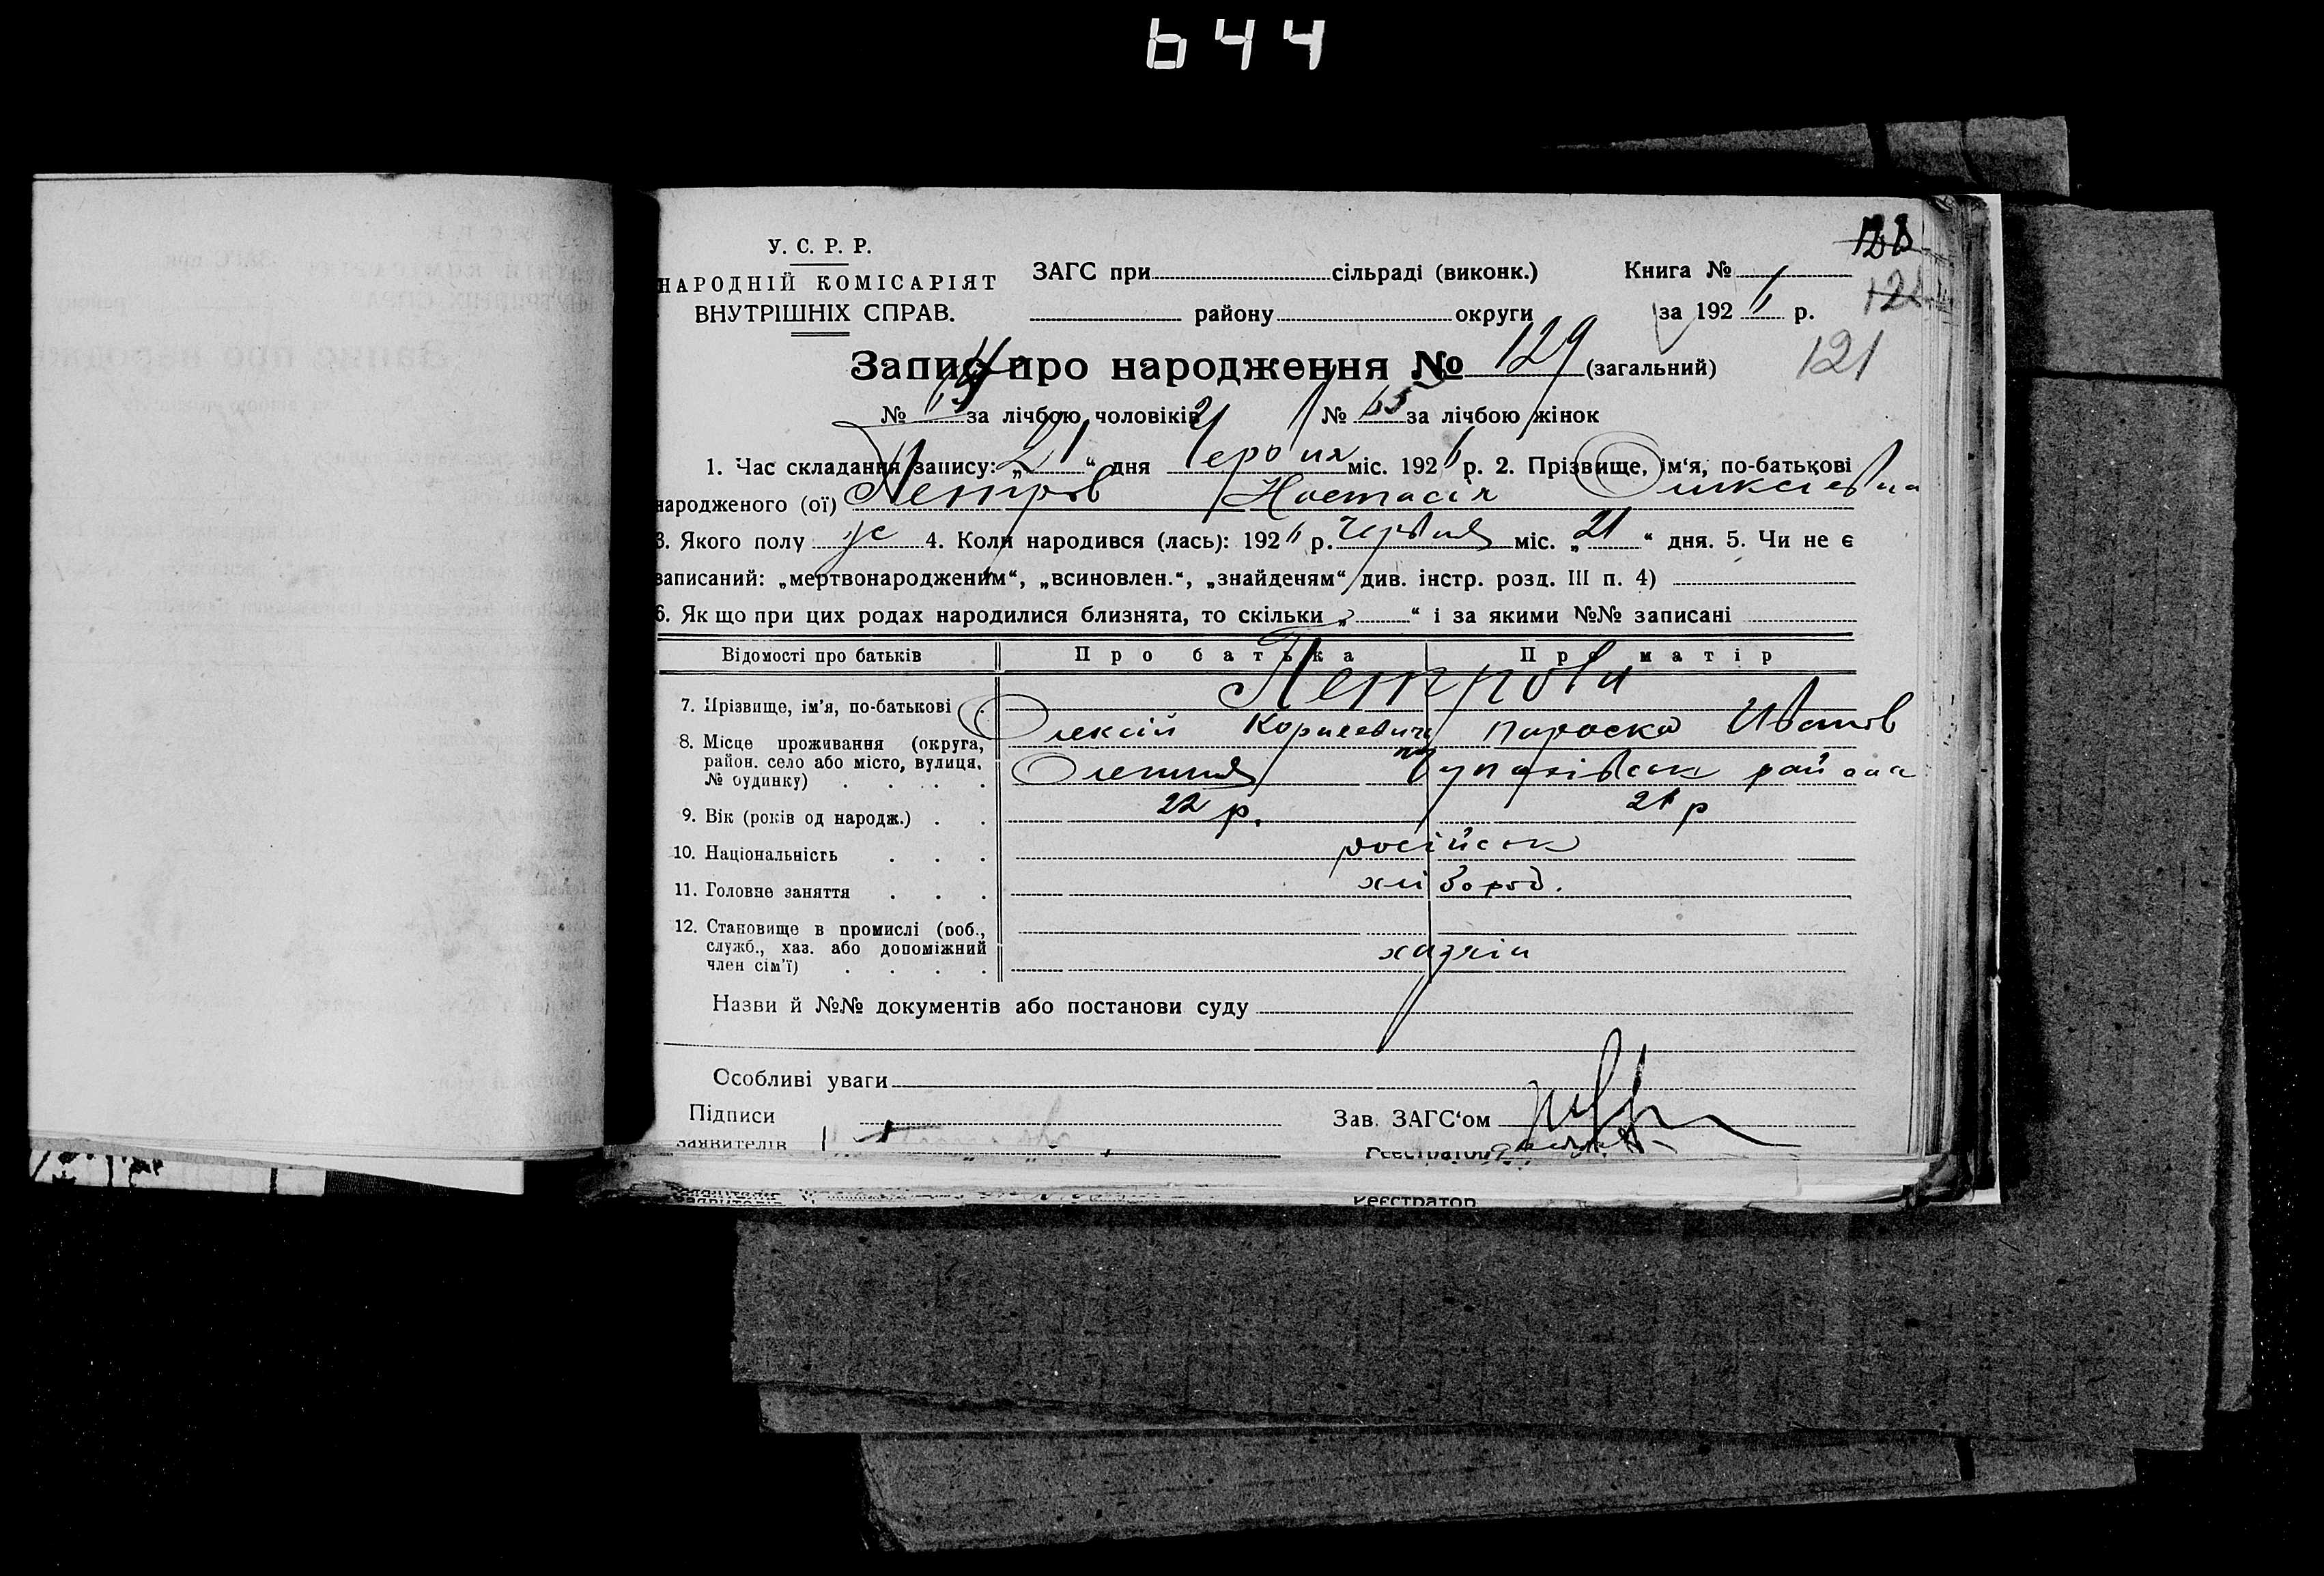 644
У. С. Р. Р.
НАРОДНІЙ КОМІСАРІЯТ
ВНУТРІШНІХ СПРАВ.
ЗАГС при сільраді (виконк.)
району округи
Книга №
за 192 р.
121
Запис про народження № 129 (загальний)
№ за лічбою чоловіків № 65 за лічбою жінок
1. Час складання запису: „21“ дня міс. 192 р. 2. Прізвище, ім‘я, по-батькові
народженого (ої) Петров Настасія
3. Якого полу ж 4. Коли народився (лась): 192 р. червня міс. „21“ дня. 5. Чи не є
записаний: „мертвонародженим“, „всиновлен.“, „знайденям“ див. інстр. розд. III п. 4)
6. Як що при цих родах народилися близнята, то скільки „ “ і за якими №№ записані
Відомості про батьків Про батька Про матір
Петрови
7. Прізвище, ім’я, по-батькові Олексій Параска Иванов
8. Місце проживання (округа,
район. село або місто, вулиця,
№ будинку) району
9. Вік (років од народж.) 22 р. 21 р
10. Національність російськ
11. Головне заняття хлібороб.
12. Становище в промислі (роб.,
служб., хаз. або допоміжний
член сім’ї) хазяїн
Назви й №№ документів або постанови суду
Особливі уваги
Підписи Зав. ЗАГС‘ом
заявителів Реєстратор
Реєстратор